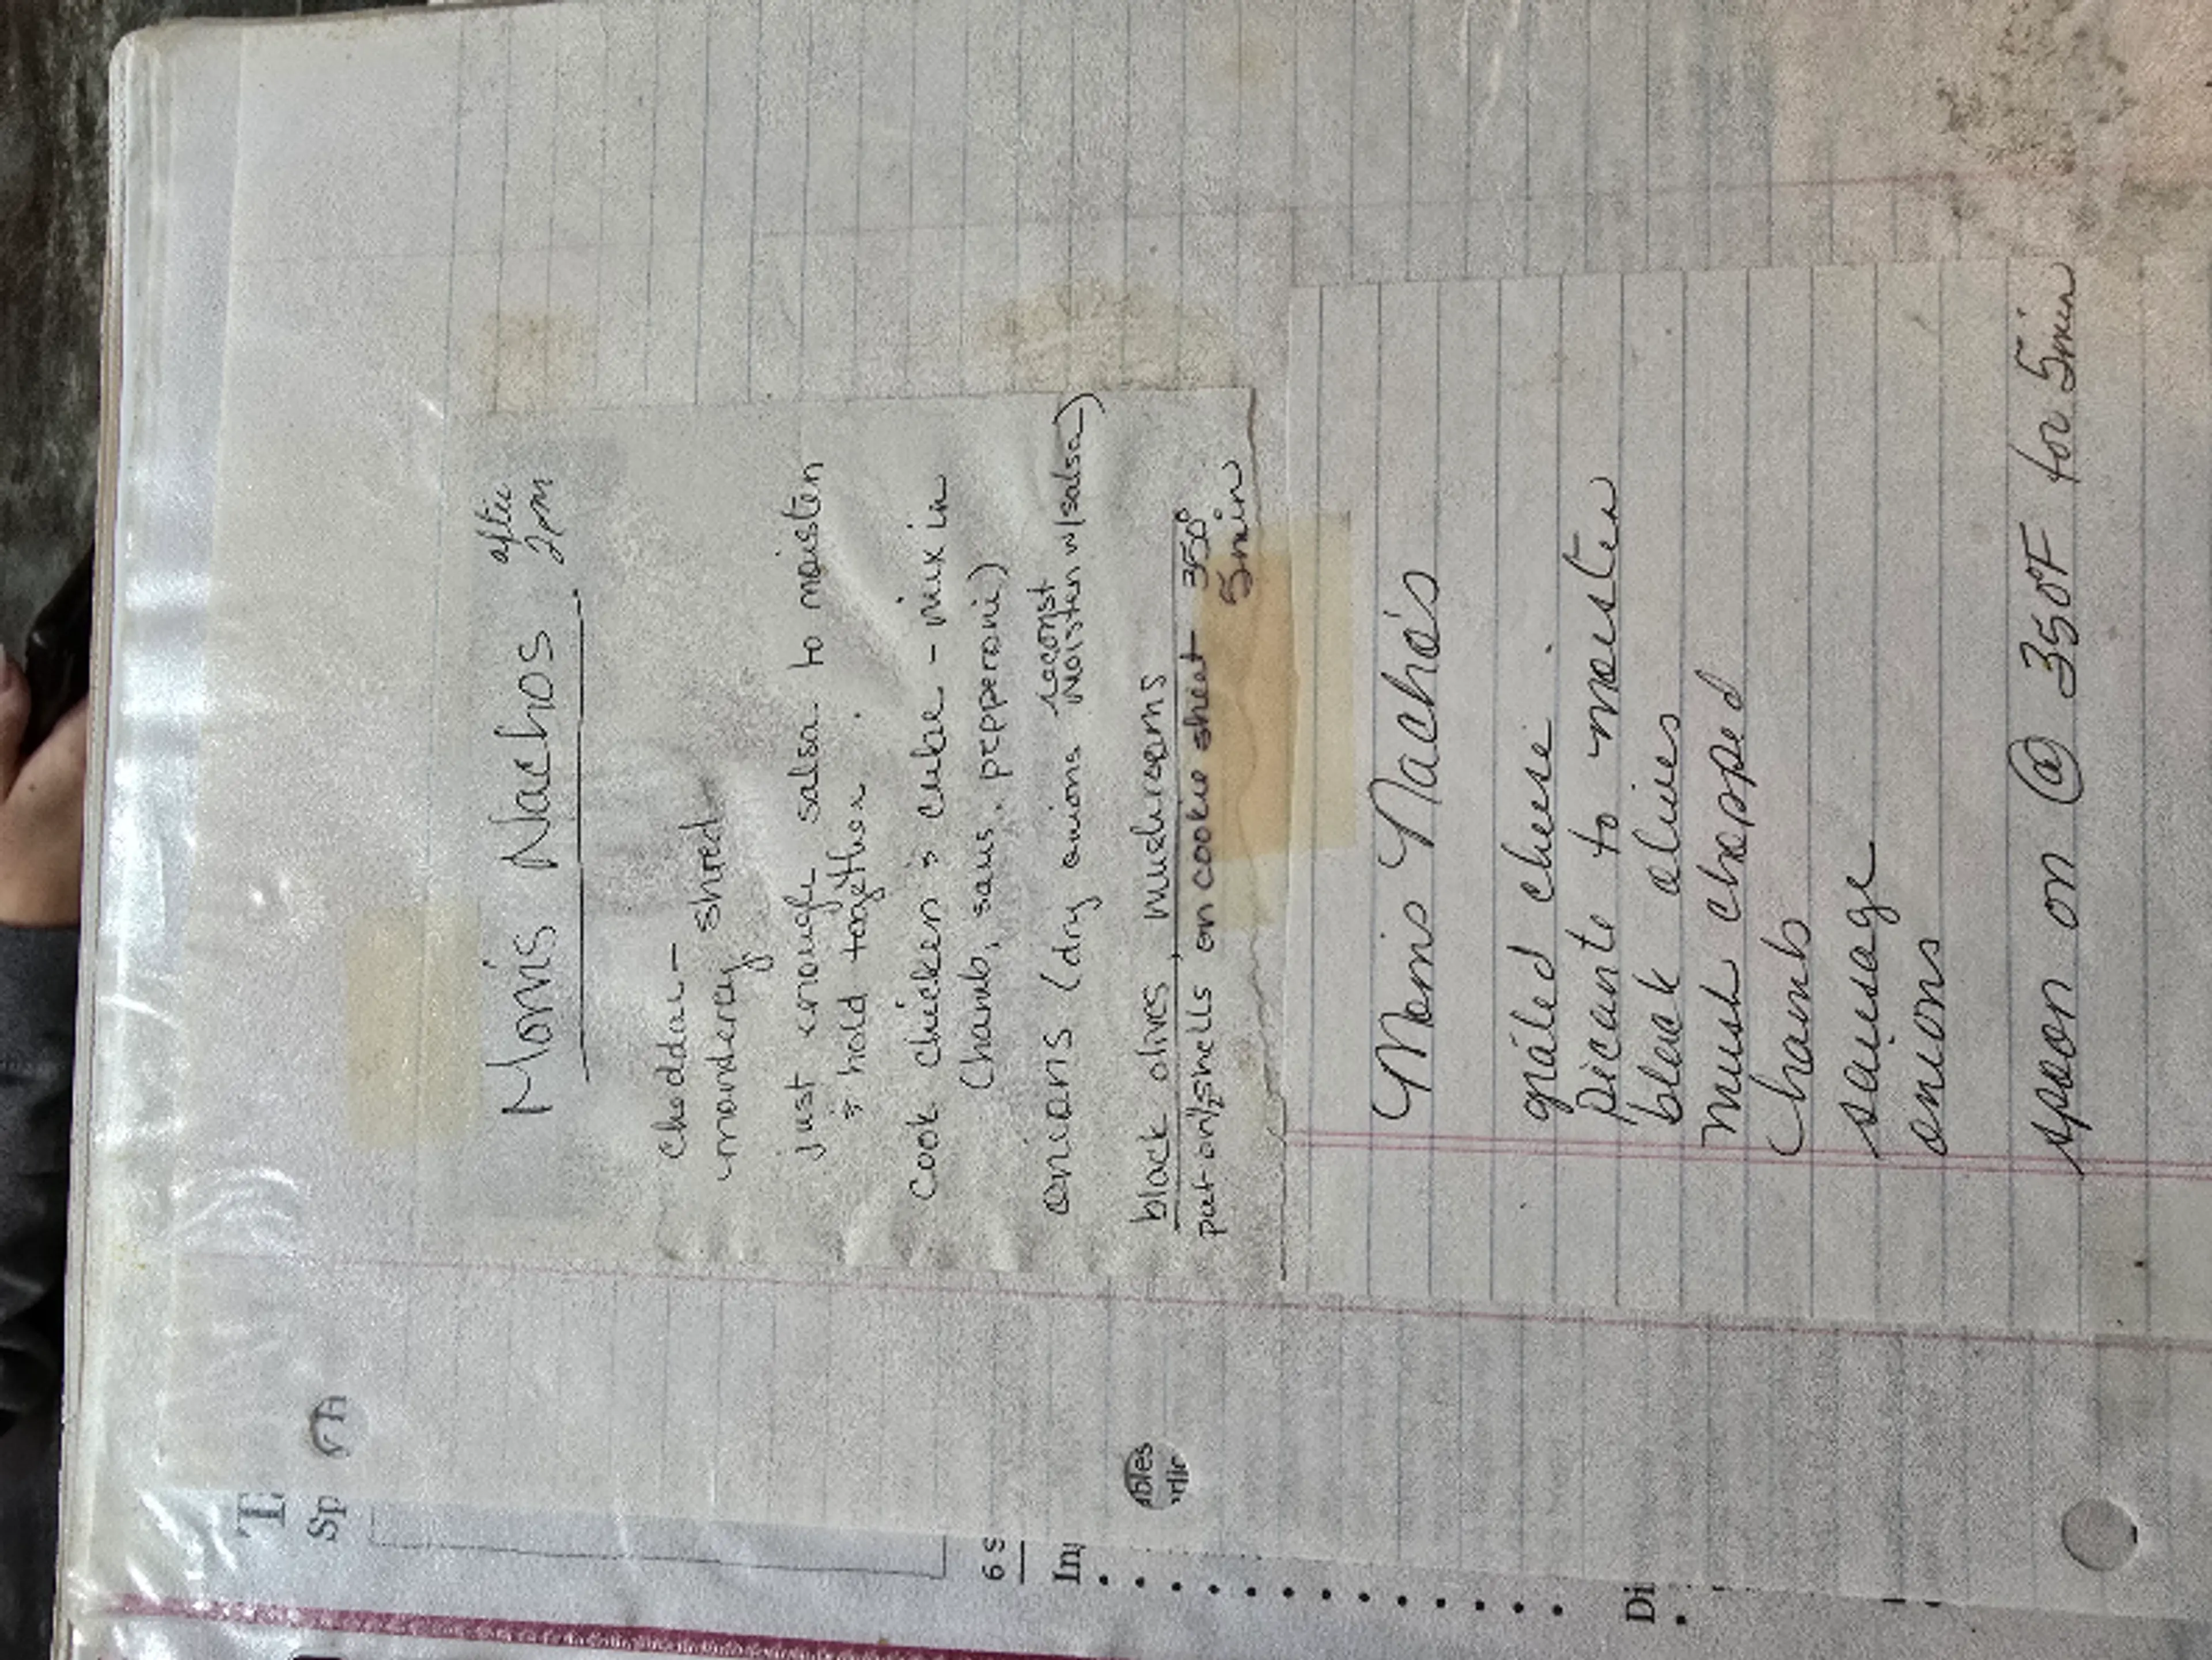 Mom's Nachos after
2pm
cheddar -
monderey shred
just enough salsa to moisten
& hold together.
Cook chicken & cube - mix in
(hamb, saus, pepperoni)
onions (dry onions reconst
moisten w/salsa)
black olives, mushrooms
put on ½ shells on cookie sheet 350°
5min
Mom's Nacho's
grated cheese
picante to moisten
black olives
mush chopped
(hamb
sausage
onions
spoon on @ 350°F for 5min
T
Sp
6 s
In
bles
rlic
Di